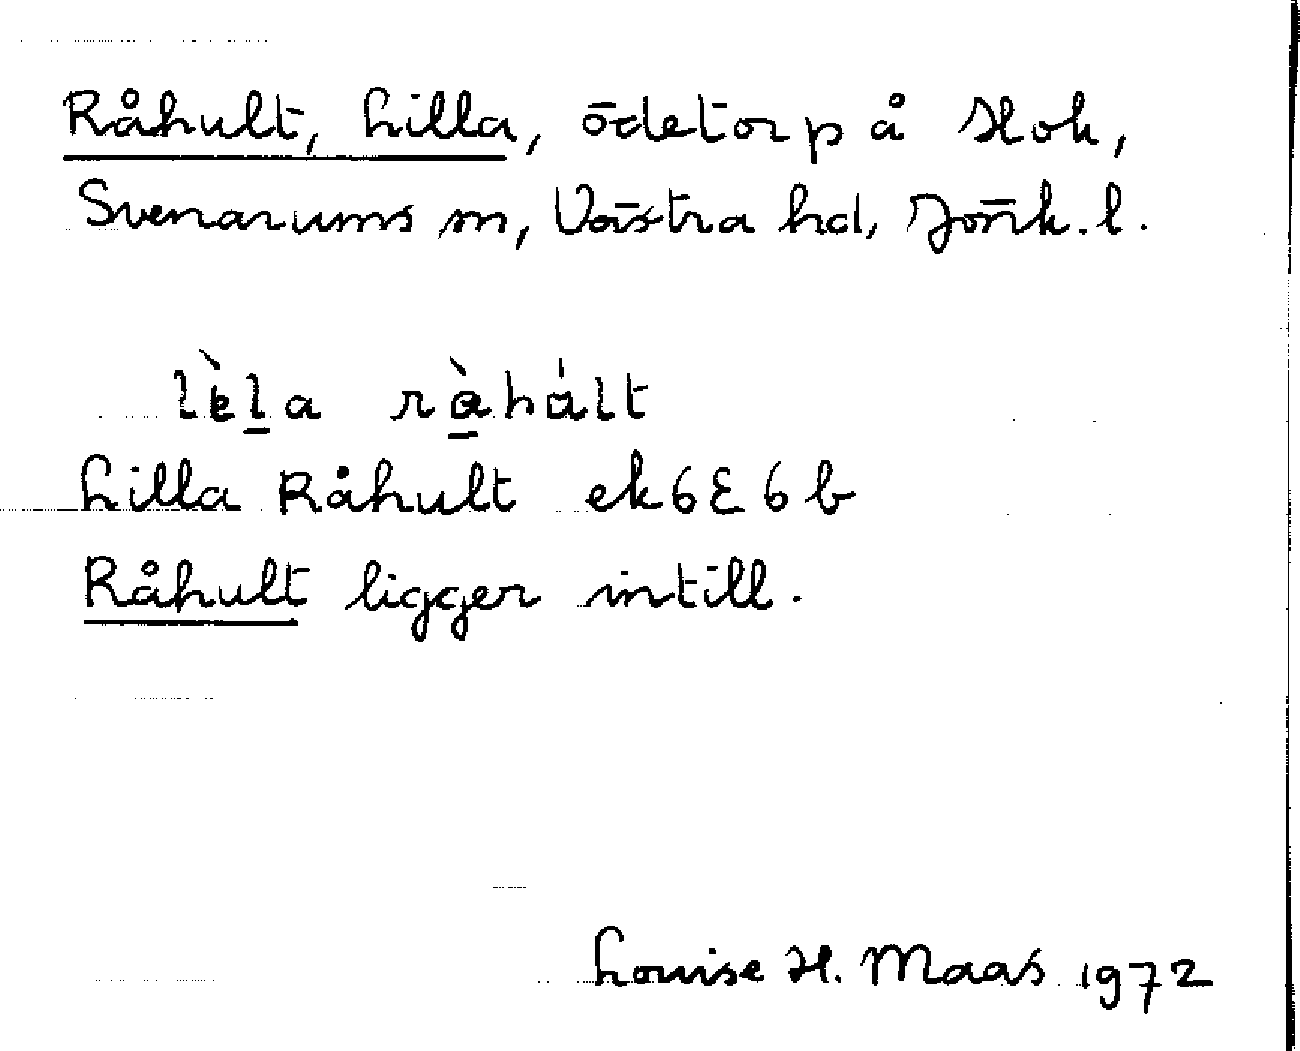 Råhult, Lilla, ödetorp å Hok,
Svenarums sn, Västra hd, Jönk. l.
lèla ràhált
Lilla Råhult ek 6E6b
Råhult ligger intill.
Louise H. Maas 1972